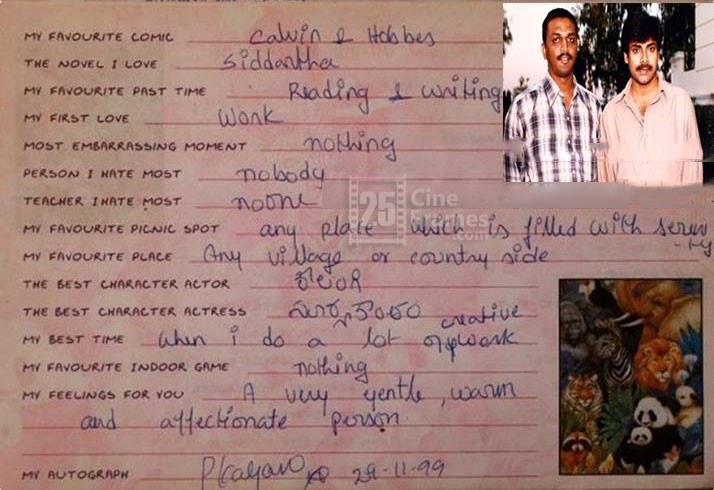 MY FAVOURITE COMIC Calvin & Hobbes
THE NOVEL I LOVE Siddartha
MY FAVOURITE PAST TIME Reading & writing
MY FIRST LOVE Work
MOST EMBARRASSING MOMENT nothing
PERSON I HATE MOST nobody
TEACHER I HATE MOST noone
25 Cine Frames .com
MY FAVOURITE PICNIC SPOT any place which is filled with seren
-ity
MY FAVOURITE PLACE Any village or country side
THE BEST CHARACTER ACTOR
THE BEST CHARACTER ACTRESS సూర్యకాంతం
MY BEST TIME When i do a lot of creative work
MY FAVOURITE INDOOR GAME nothing
MY FEELINGS FOR YOU A very gentle, warm
and affectionate person.
MY AUTOGRAPH PKalyan 29-11-99